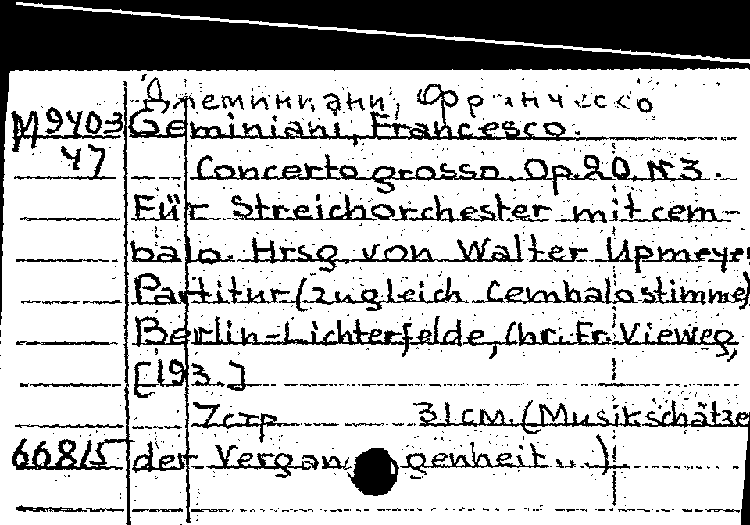 Джеминиани, Франческо
М940-3 Geminiani, Francesco.
47 Concerto grosso. Op.20. N3.
Für Streichorchester mit cem-
balo. Hrsg von Walter Upmeyer
Partitur (zugleich Cembalostimme)
Berlin-Lichterfelde, Chr. Fr. Vieweg,
[193.]
7 стр 31 см. (Musikschätze
668/5 der Vergangenheit...)